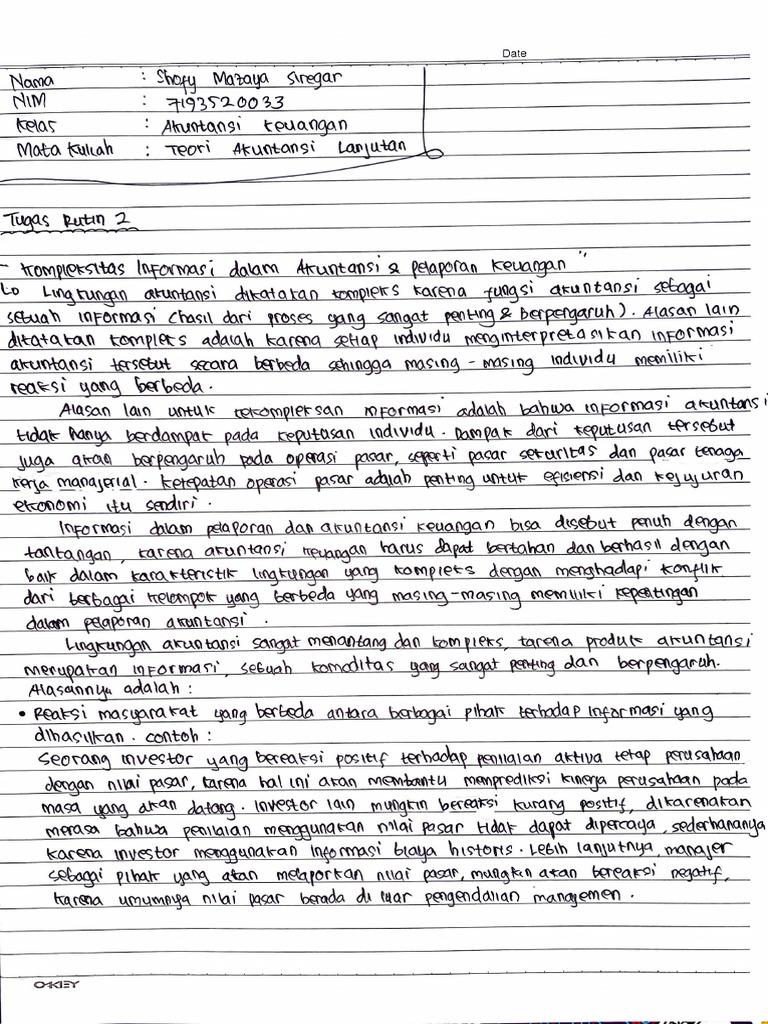 Date
Nama : Shofy Mazaya Siregar
NIM : 7193520033
Kelas : Akuntansi Keuangan
Mata Kuliah : Teori Akuntansi Lanjutan
Tugas Rutin 2
- Kompleksitas Informasi dalam Akuntansi & pelaporan Keuangan "
Lo Lingkungan akuntansi dikatakan kompleks karena fungsi akuntansi sebagai
sebuah informasi (hasil dari proses yang sangat penting & berpengaruh). Alasan lain
dikatakan kompleks adalah karena setiap individu menginterpretasikan informasi
akuntansi tersebut secara berbeda sehingga masing-masing individu memiliki
reaksi yang berbeda.
Alasan lain untuk kekompleksan informasi adalah bahwa informasi akuntansi
tidak hanya berdampak pada keputusan individu. Dampak dari keputusan tersebut
juga akan berpengaruh pada operasi pasar, seperti pasar sekuritas dan pasar tenaga
kerja manajerial. Ketepatan operasi pasar adalah penting untuk efisiensi dan kejujuran
ekonomi itu sendiri.
Informasi dalam pelaporan dan akuntansi keuangan bisa disebut penuh dengan
tantangan, karena akuntansi keuangan harus dapat bertahan dan berhasil dengan
baik dalam karakteristik lingkungan yang kompleks dengan menghadapi konflik
dari berbagai kelompok yang berbeda yang masing-masing memiliki kepentingan
dalam pelaporan akuntansi.
Lingkungan akuntansi sangat menantang dan kompleks, karena produk akuntansi
merupakan informasi, sebuah komoditas yang sangat penting dan berpengaruh.
Alasannya adalah :
• Reaksi masyarakat yang berbeda antara berbagai pihak terhadap informasi yang
dihasilkan. contoh :
Seorang investor yang bereaksi positif terhadap penilaian aktiva tetap perusahaan
dengan nilai pasar, karena hal ini akan membantu menprediksi kinerja perusahaan pada
masa yang akan datang. Investor lain mungkin bereaksi kurang positif, dikarenakan
merasa bahwa penilaian menggunakan nilai pasar tidak dapat dipercaya, sederhananya
karena investor menggunakan informasi biaya historis. Lebih lanjutnya, manajer
sebagai pihak yang akan melaporkan nilai pasar, mungkin akan bereaksi negatif,
karena umumnya nilai pasar berada di luar pengendalian managemen.
OKEY